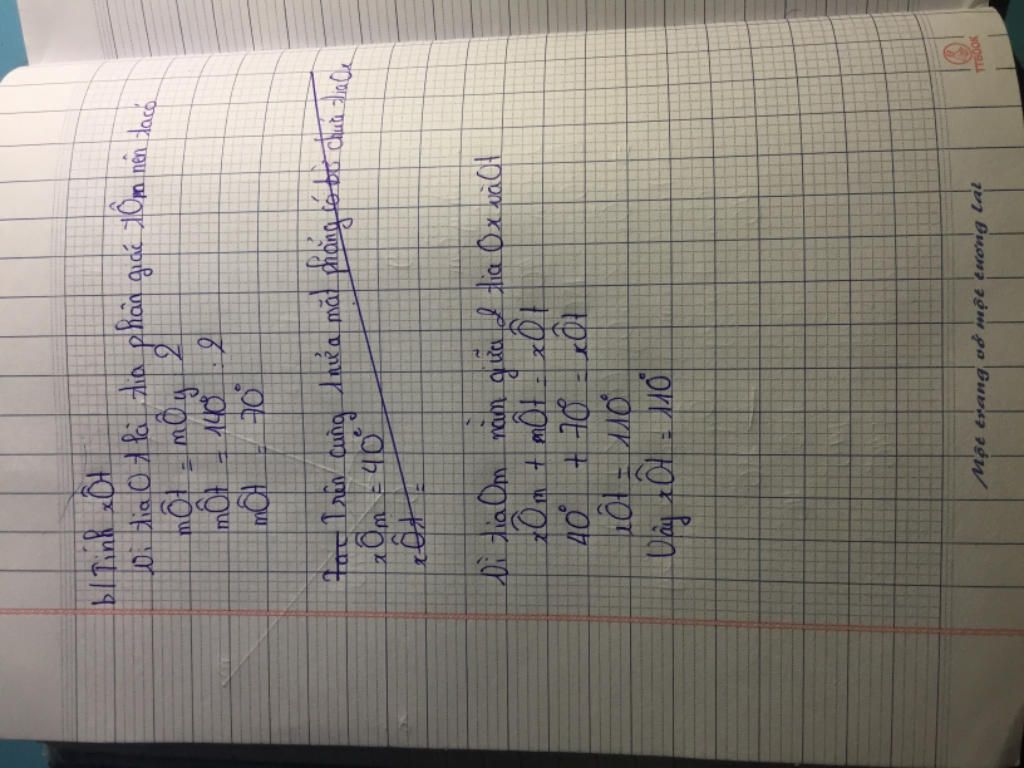 b/ Tính xÔt
Vì tia Ot là tia phân giác tÔm nên ta có
mÔt = mÔy 2
mÔt = 140° : 2
mÔt = 70°
Trên cùng 1 nửa mặt phẳng có bờ chứa tia Ox
xÔm = 40°
xÔt =
Vì tia Om nằm giữa 2 tia Ox và Ot
xÔm + mÔt = xÔt
40° + 70° = xÔt
xÔt = 110°
Vậy xÔt = 110°
Một trang vở một tương lai
TTBOOK